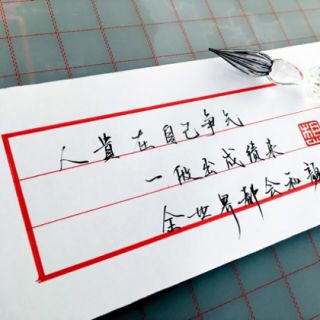 人贵在自己争气
一做出成绩来
全世界都会和颜